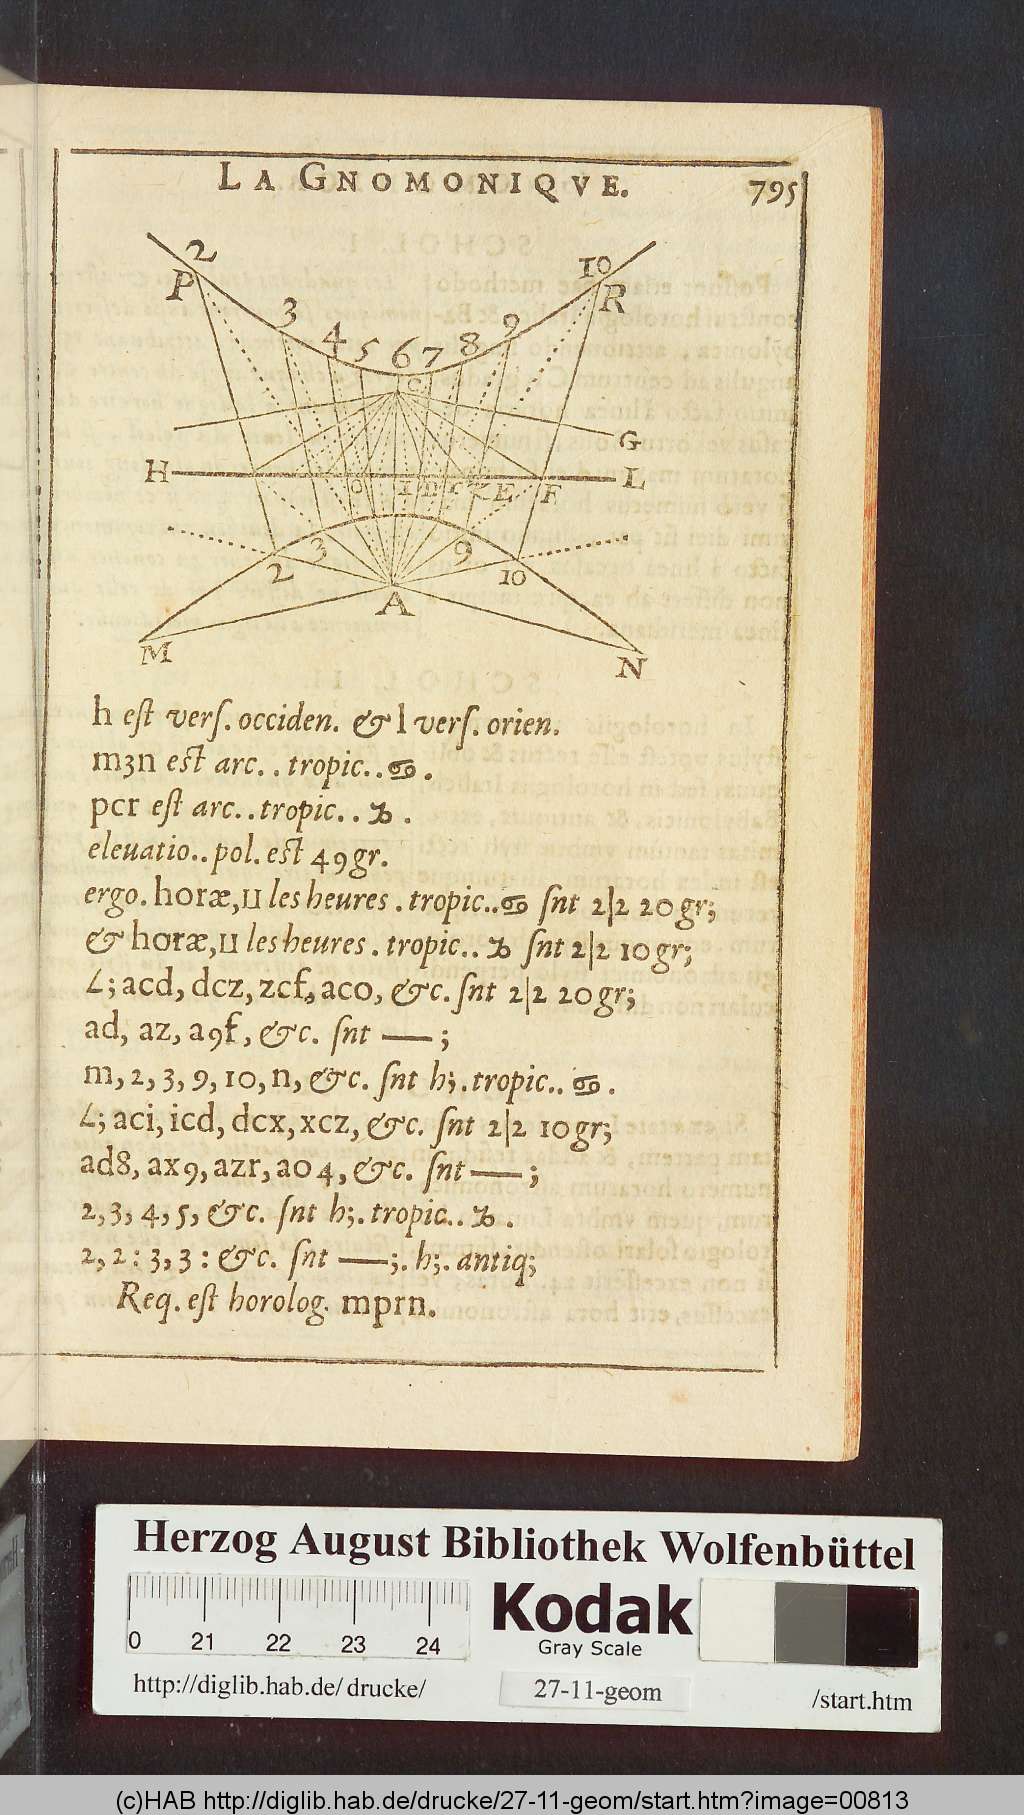 LA GNOMONIQVE. 795
2 10
P R
3 4 5 6 7 8 9
C
G
H L
O I D X Z E F
2 3 9 10
A
M N
h eſt verſ. occiden. & l verſ. orien.
m3n est arc. . tropic. . ♋ .
pcr eſt arc. . tropic. . ♑ .
eleuatio. . pol. est 49 gr.
ergo. horæ, ⊔ les heures . tropic. . ♋ ſnt 2|2 20 gr;
& horæ, ⊔ les heures . tropic. . ♑ ſnt 2|2 10 gr;
∠; acd, dcz, zcf, aco, &c. ſnt 2|2 20 gr;
ad, az, a9f, &c. ſnt — ;
m, 2, 3, 9, 10, n, &c. ſnt h;. tropic. . ♋ .
∠; aci, icd, dcx, xcz, &c. ſnt 2|2 10 gr;
ad8, ax9, azr, ao4, &c. ſnt — ;
2, 3, 4, 5, &c. ſnt h;. tropic. . ♑ .
2, 2 : 3, 3 : &c. ſnt —;. h;. antiq;
Req. eſt horolog. mprn.
Herzog August Bibliothek Wolfenbüttel
0 21 22 23 24
Kodak
Gray Scale
http://diglib.hab.de/drucke/ 27-11-geom /start.htm
(c)HAB http://diglib.hab.de/drucke/27-11-geom/start.htm?image=00813